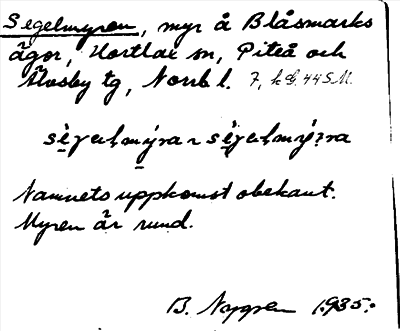 Segelmyren, myr å Blåsmarks
ägor, Hortlax sn, Piteå och
Älvsby tg, Norrb l. 7, k G. 44 S.M.
Namnets uppkomst obekant.
Myren är rund.
B. Nygren 1935.